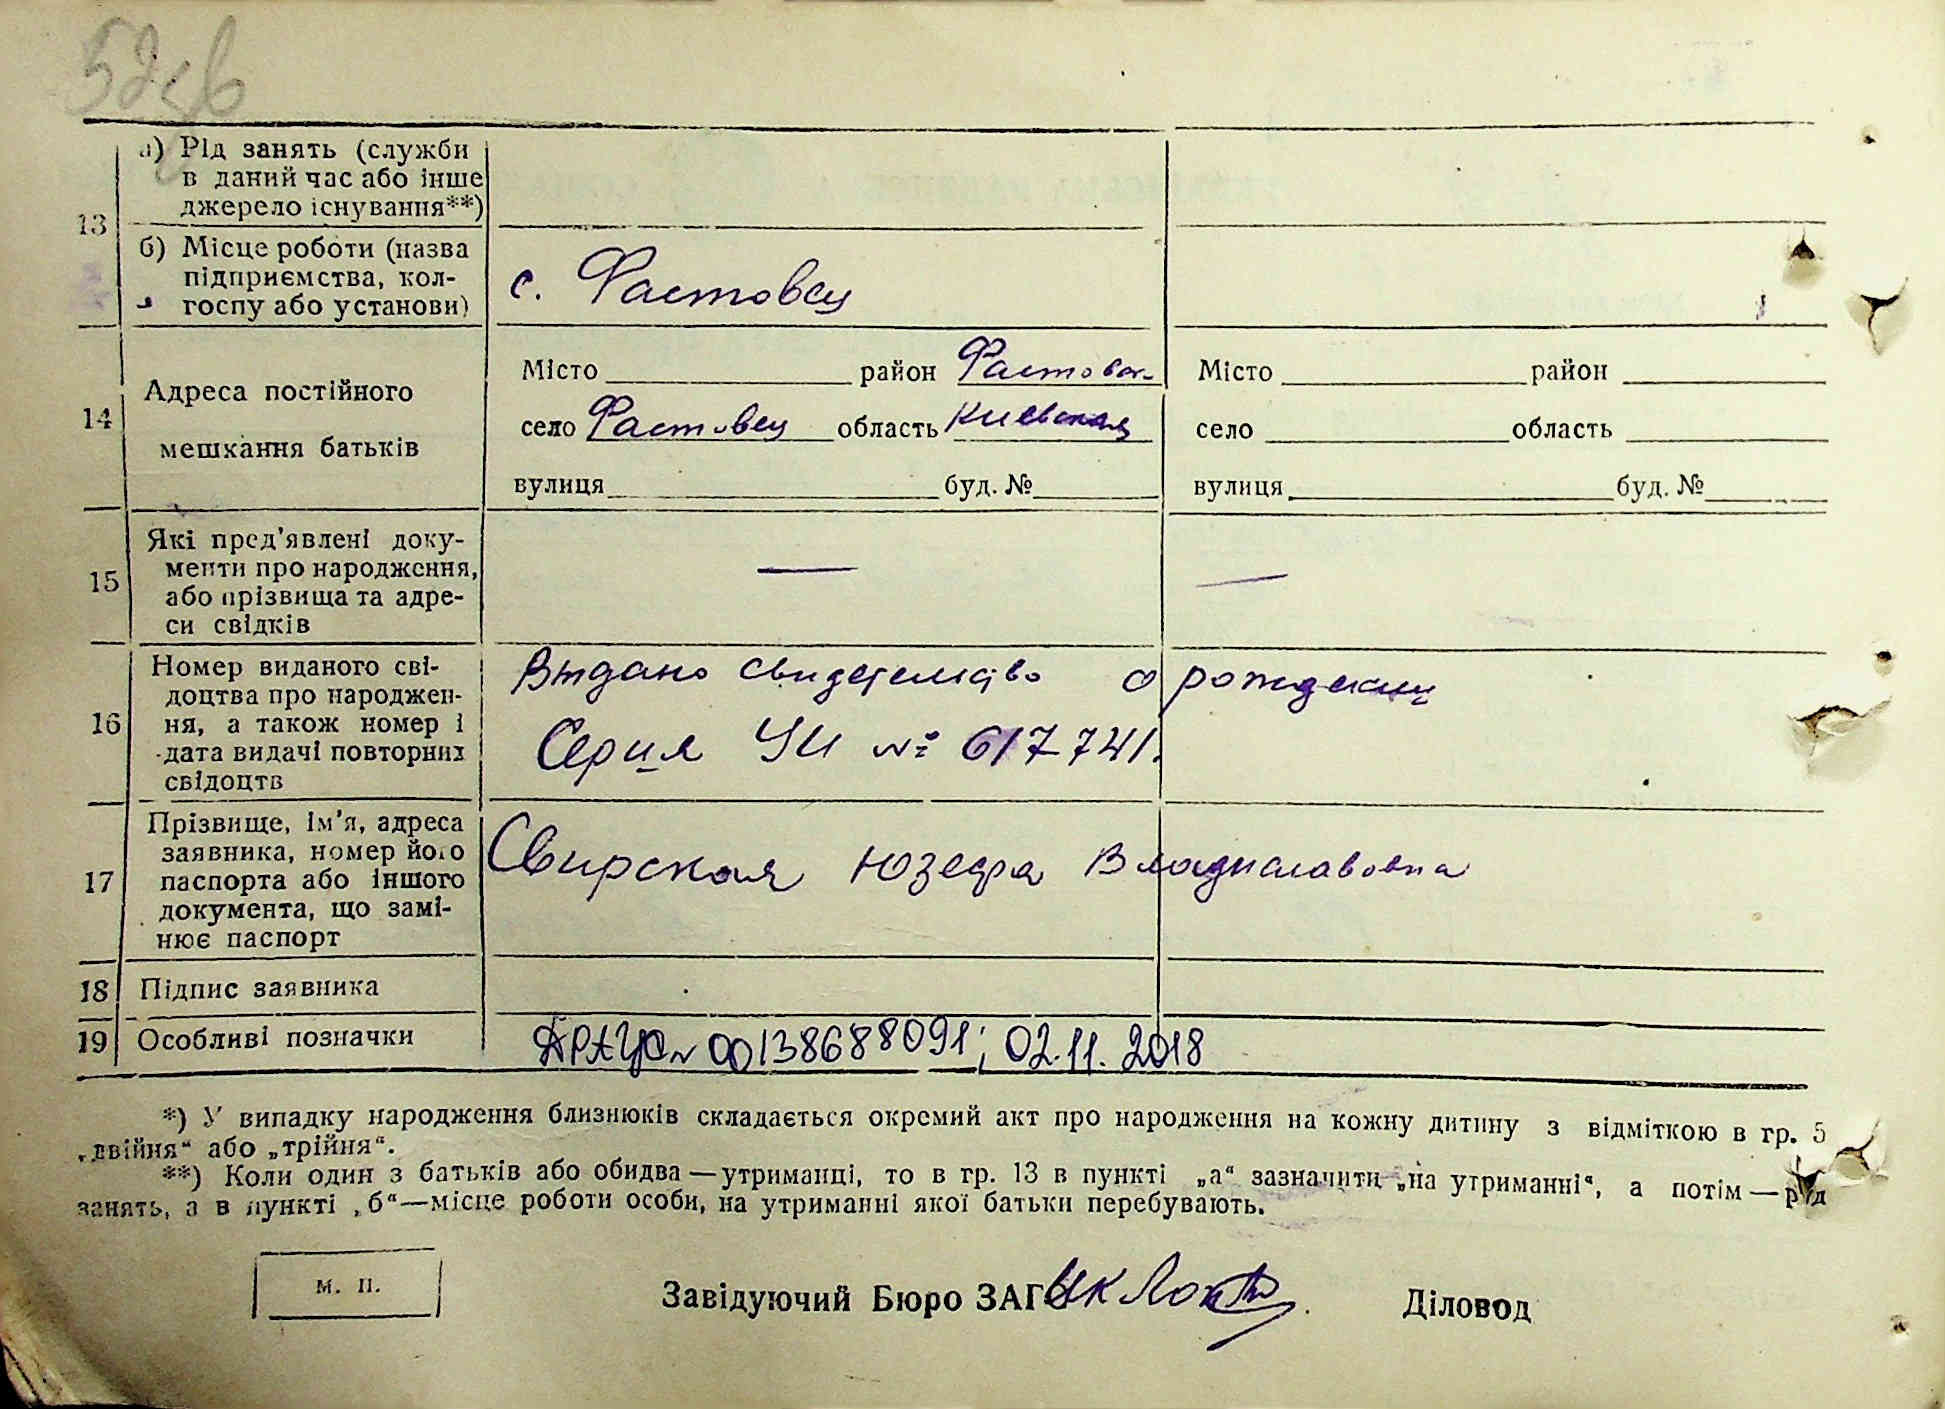 13
а) Рід занять (служби
в даний час або інше
джерело існування**)
б) Місце роботи (назва
підприємства, кол-
госпу або установи)
с. Фастовец
14
Адреса постійного
мешкання батьків
Місто район Фастовск-
село Фастовец область Киевская
вулиця буд. №
Місто район
село область
вулиця буд. №
15
Які пред'явлені доку-
менти про народження,
або прізвища та адре-
си свідків
— —
16
Номер виданого сві-
доцтва про народжен-
ня, а також номер і
дата видачі повторних
свідоцтв
Выдано свидетельство о рождении
Серия УИ № 617741.
17
Прізвище, ім'я, адреса
заявника, номер його
паспорта або іншого
документа, що замі-
нює паспорт
Свирская Юзефа Владиславовна
18 Підпис заявника
19 Особливі позначки
ДРАЦС 00138688091; 02.11.2018
*) У випадку народження близнюків складається окремий акт про народження на кожну дитину з відміткою в гр. 5
„двійня“ або „трійня“.
**) Коли один з батьків або обидва — утриманці, то в гр. 13 в пункті „а“ зазначити „на утриманні“, а потім — рід
занять, а в пункті „б“—місце роботи особи, на утриманні якої батьки перебувають.
М. П.
Завідуючий Бюро ЗАГС
Діловод